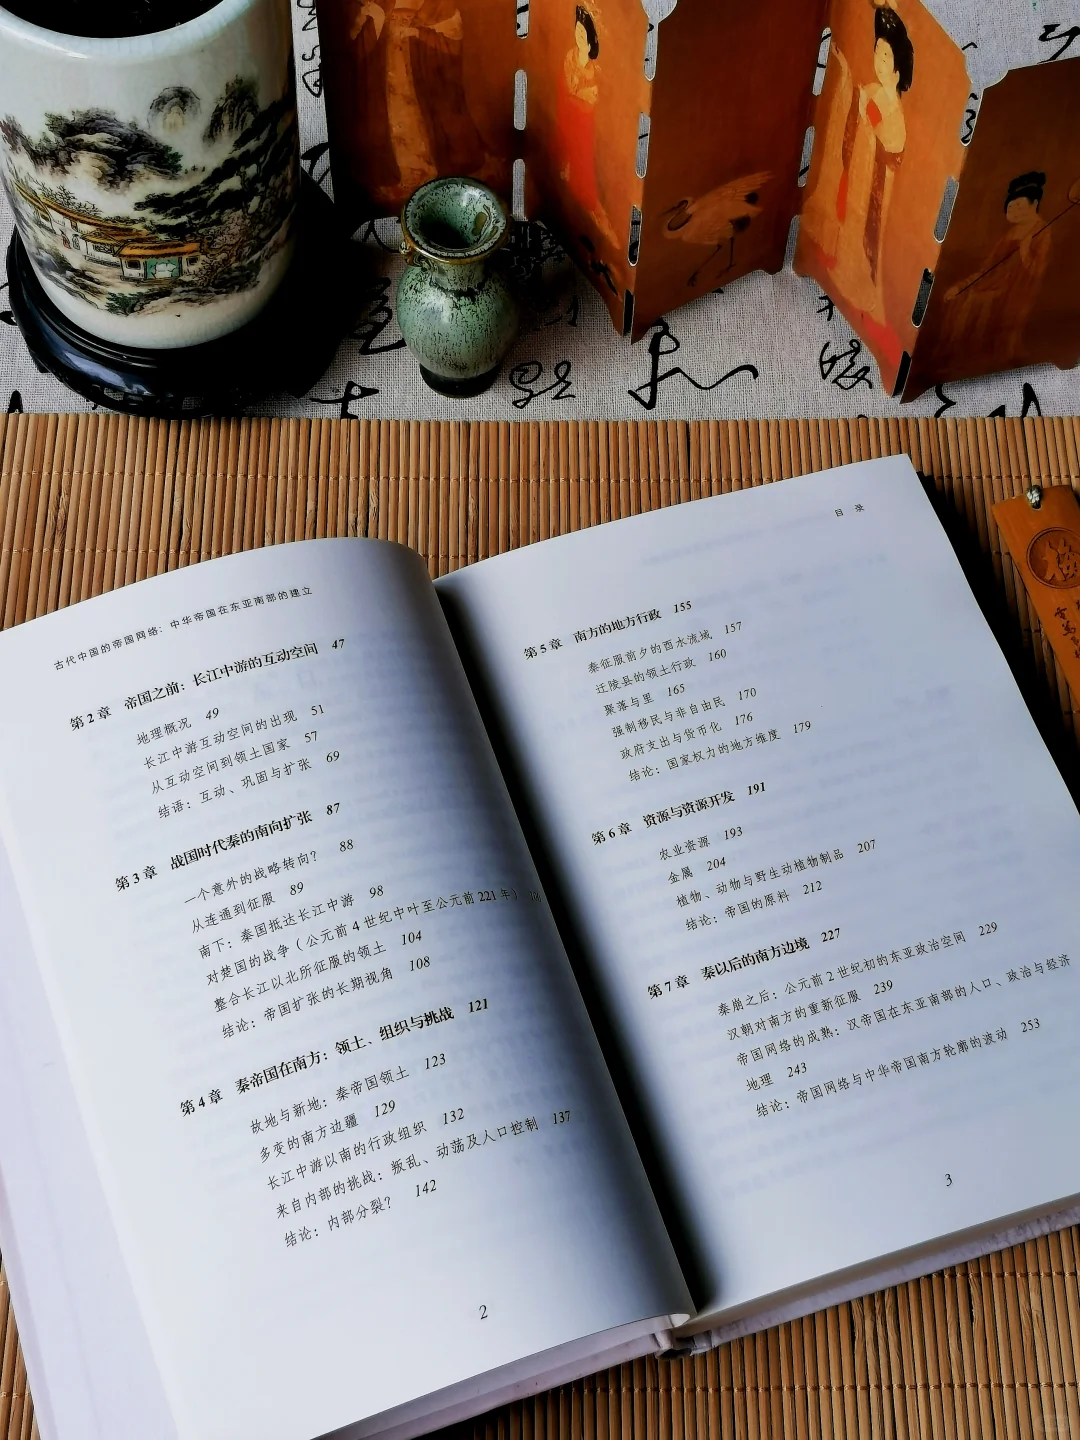 古代中国的帝国网络：中华帝国在东亚南部的建立
第 2 章 帝国之前：长江中游的互动空间 47
地理概况 49
长江中游互动空间的出现 51
从互动空间到领土国家 57
结语：互动、巩固与扩张 69
第 3 章 战国时代秦的南向扩张 87
一个意外的战略转向？ 88
从连通到征服 89
南下：秦国抵达长江中游 98
对楚国的战争（公元前 4 世纪中叶至公元前 221 年）
整合长江以北所征服的领土 104
结论：帝国扩张的长期视角 108
第 4 章 秦帝国在南方：领土、组织与挑战 121
故地与新地：秦帝国领土 123
多变的南方边疆 129
长江中游以南的行政组织 132
来自内部的挑战：叛乱、动荡及人口控制 137
结论：内部分裂？ 142
2
目 录
第 5 章 南方的地方行政 155
秦征服前夕的酉水流域 157
迁陵县的领土行政 160
聚落与里 165
强制移民与非自由民 170
政府支出与货币化 176
结论：国家权力的地方维度 179
第 6 章 资源与资源开发 191
农业资源 193
金属 204
植物、动物与野生动植物制品 207
结论：帝国的原料 212
第 7 章 秦以后的南方边境 227
秦崩之后：公元前 2 世纪初的东亚政治空间 229
汉朝对南方的重新征服 239
帝国网络的成熟：汉帝国在东亚南部的人口、政治与经济
地理 243
结论：帝国网络与中华帝国南方轮廓的波动 253
3